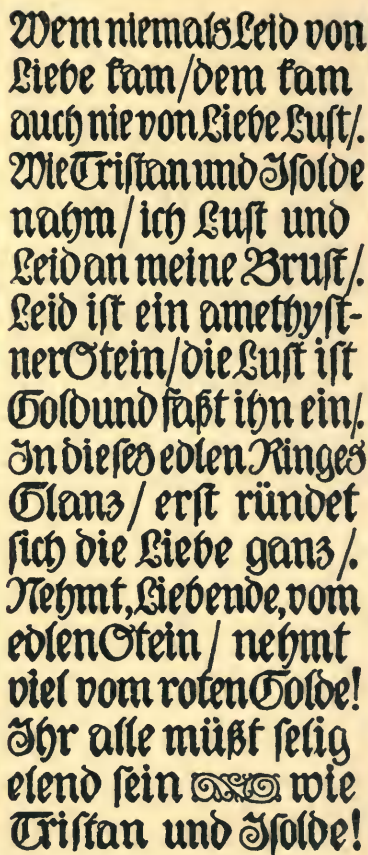 Wem niemals Leid von
Liebe kam/dem kam
auch nie von Liebe Lust/.
Wie Tristan und Isolde
nahm/ich Lust und
Leid an meine Brust/.
Leid ist ein amethyst-
ner Stein/die Lust ist
Gold und faßt ihn ein/.
In dieses edlen Ringes
Glanz/erst ründet
sich die Liebe ganz/.
Nehmt, Liebende, vom
edlen Stein/nehmt
viel vom roten Golde!
Ihr alle müßt selig
elend sein wie
Tristan und Isolde!